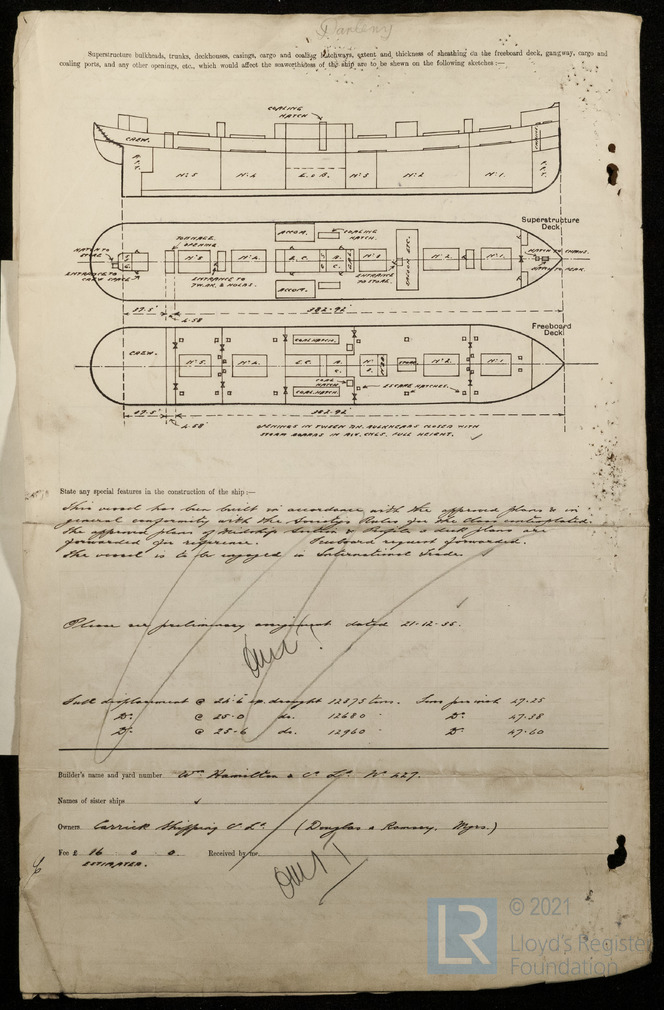 Superstructure bulkheads, trunks, deckhouses, casings, cargo and coaling hatchways, extent and thickness of sheathing on the freeboard deck, gangway, cargo and
coaling ports, and any other openings, etc., which would affect the seaworthiness of the ship are to be shewn on the following sketches :—
COALING
HATCH
CREW.
Nº 5
Nº 4
E & B.
Nº 3
Nº 2
Nº 1.
Superstructure
Deck
HATCH TO
STORE
ENTRANCE TO
CREW SPACE
TONNAGE
OPENING
ENTRANCE TO
ACCOM.
COALING
HATCH.
ACCOM.
ENTRANCE
37.5'
4.58
382.92'
Freeboard
Deck
CREW.
Nº 5.
Nº 4.
COAL HATCH.
E.C.
COAL
HATCH
COAL HATCH
Nº 2.
Nº 1
ESCAPE HATCHES.
37.5'
4.58'
382.92'
OPENINGS IN TWEEN DK. BULKHEADS CLOSED WITH
STORM BOARDS IN FULL HEIGHT.
State any special features in the construction of the ship :—
This vessel has been built in accordance with the approved plans & in
general conformity with the Society's Rules for the Class contemplated.
The approved plans of Midship Section & Profile & deck plans are
forwarded for reference. Freeboard request forwarded.
The vessel is to be engaged in International Trade.
Please see preliminary assignment dated 21-12-35.
@ draught 12375 tons. Tons per inch 47.25
Do. @ 25-0 do. 12680 Do. 47.38
Do. @ 25-6 do. 12960 Do. 47.60
Builder's name and yard number Wm Hamilton & Co Ld. No 427.
Names of sister ships
Owners Carrick Shipping Co Ld. (Douglas & Ramsey, Mgrs.)
Fee £ 16 0 0. Received by me,
ESTIMATED.
LR
© 2021
Lloyd's Register
Foundation